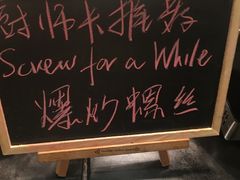 厨师长推荐
Screw for a While
爆炒螺丝